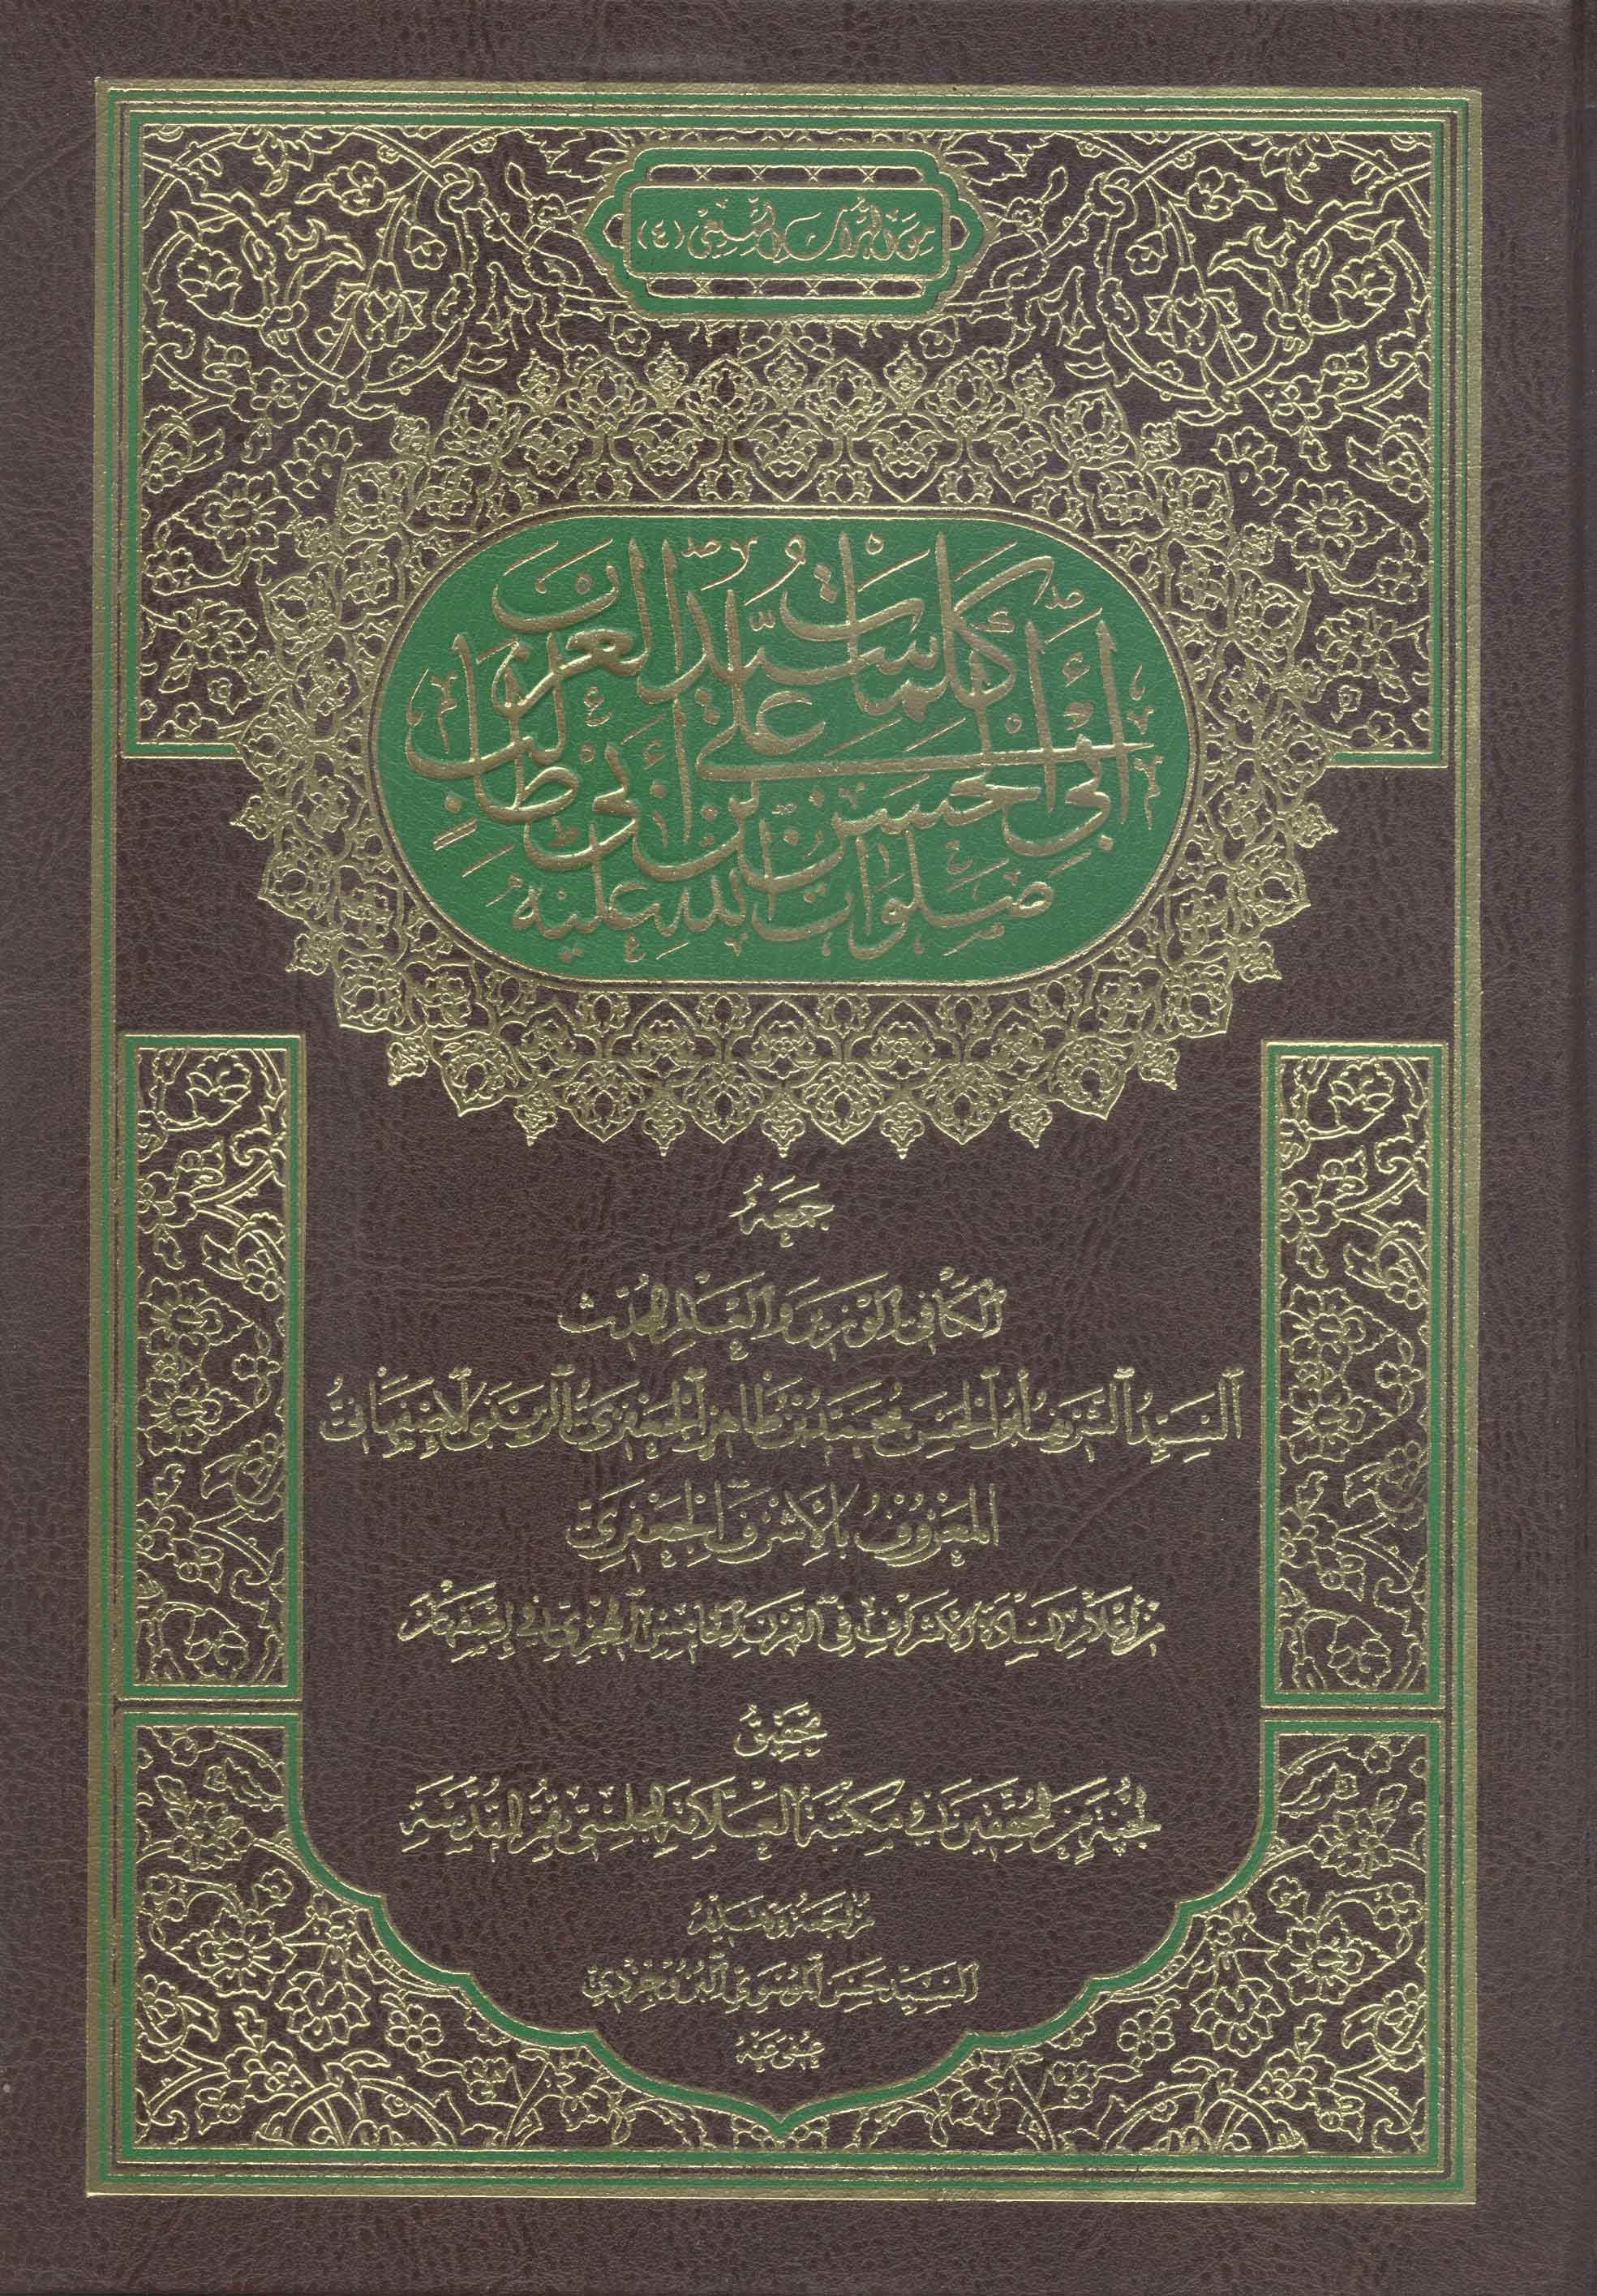 من التراث الشيعي (٤)
كلمات سيد العرب
أبي الحسن علي بن أبي طالب
صلوات الله عليه
جمعه
الكافي الوزير والعدل المحدث
السيد الشريف أبو الحسن محمد بن طاهر الجعفري الزينبي الإصفهاني
المعروف بالأشرف الجعفري
من أعلام السادة الأشراف في القرن الخامس الهجري في إصفهان
تحقيق
لجنة من المحققين في مكتبة العلامة المجلسي بقم المقدسة
مراجعة وتقديم
السيد حسن الموسوي البروجردي
عفي عنه